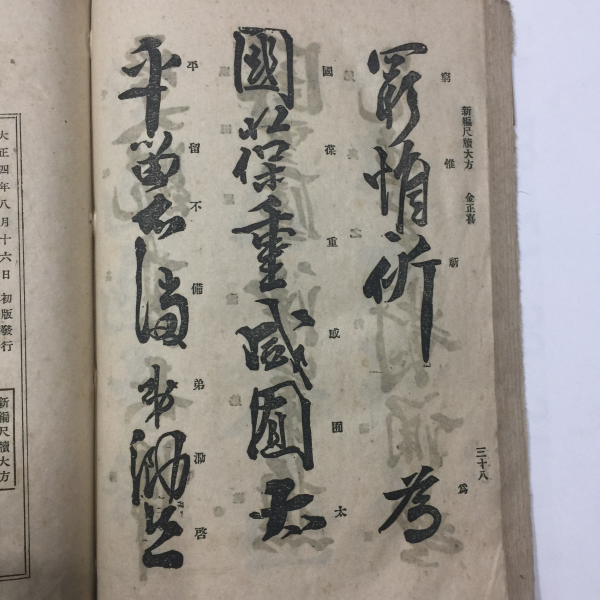 新編尺牘大方　金正喜
三十八
窮惟新　為
國葆重咸囿太
平留不備弟泐啓
大正四年八月十六日　初版發行
新編尺牘大方